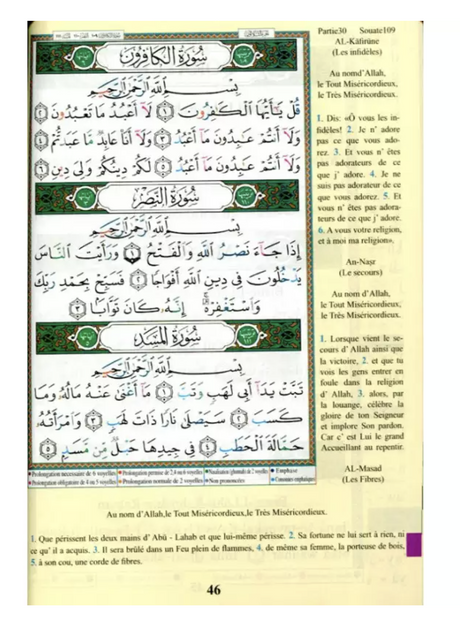 سُورَةُ الكَافِرُونَ
بِسْمِ اللَّهِ الرَّحْمَٰنِ الرَّحِيمِ
قُلْ يَٰٓأَيُّهَا ٱلْكَٰفِرُونَ ١ لَآ أَعْبُدُ مَا تَعْبُدُونَ ٢
وَلَآ أَنتُمْ عَٰبِدُونَ مَآ أَعْبُدُ ٣ وَلَآ أَنَا۠ عَابِدٌ مَّا عَبَدتُّمْ ٤
وَلَآ أَنتُمْ عَٰبِدُونَ مَآ أَعْبُدُ ٥ لَكُمْ دِينُكُمْ وَلِىَ دِينِ ٦
سُورَةُ النَّصْرِ
بِسْمِ اللَّهِ الرَّحْمَٰنِ الرَّحِيمِ
إِذَا جَآءَ نَصْرُ ٱللَّهِ وَٱلْفَتْحُ ١ وَرَأَيْتَ ٱلنَّاسَ
يَدْخُلُونَ فِى دِينِ ٱللَّهِ أَفْوَاجًا ٢ فَسَبِّحْ بِحَمْدِ رَبِّكَ
وَٱسْتَغْفِرْهُ إِنَّهُۥ كَانَ تَوَّابًۢا ٣
سُورَةُ المَسَدِ
بِسْمِ اللَّهِ الرَّحْمَٰنِ الرَّحِيمِ
تَبَّتْ يَدَآ أَبِى لَهَبٍ وَتَبَّ ١ مَآ أَغْنَىٰ عَنْهُ مَالُهُۥ وَمَا
كَسَبَ ٢ سَيَصْلَىٰ نَارًا ذَاتَ لَهَبٍ ٣ وَٱمْرَأَتُهُۥ
حَمَّالَةَ ٱلْحَطَبِ ٤ فِى جِيدِهَا حَبْلٌ مِّن مَّسَدٍۭ ٥
Prolongation necessaire de 6 voyelles Prolongation permise de 2,4 ou 6 voyelles Nasalisation (ghunnah) de 2 voyelles Emphase
Prolongation obligatoire de 4 ou 5 voyelles Prolongation normale de 2 voyelles Non prononcées Consonnes emphatiques
Partie30 Souate109
AL-Kāfirūne
(Les infidèles)
Au nomd'Allah,
le Tout Miséricordieux,
le Très Miséricordieux.
1. Dis: «Ô vous les in-
fidèles! 2. Je n' adore
pas ce que vous ado-
rez. 3. Et vous n' êtes
pas adorateurs de ce
que j' adore. 4. Je ne
suis pas adorateur de ce
que vous adorez. 5. Et
vous n' êtes pas adora-
teurs de ce que j' adore.
6. A vous votre religion,
et à moi ma religion».
An-Naṣr
(Le secours)
Au nom d'Allah,
le Tout Miséricordieux,
le Très Miséricordieux.
1. Lorsque vient le se-
cours d' Allah ainsi que
la victoire, 2. et que tu
vois les gens entrer en
foule dans la religion
d' Allah, 3. alors, par
la louange, célèbre la
gloire de ton Seigneur
et implore Son pardon.
Car c' est Lui le grand
Accueillant au repentir.
AL-Masad
(Les Fibres)
Au nom d'Allah,le Tout Miséricordieux,le Très Miséricordieux.
1. Que périssent les deux mains d' Abū - Lahab et que lui-même périsse. 2. Sa fortune ne lui sert à rien, ni
ce qu' il a acquis. 3. Il sera brûlé dans un Feu plein de flammes, 4. de même sa femme, la porteuse de bois,
5. à son cou, une corde de fibres.
46